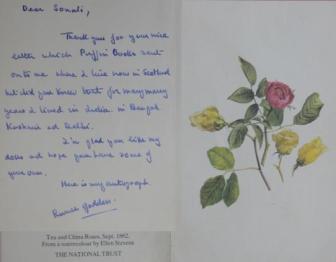 Dear Sonali,
Thank you for your nice
letter which Puffin Books sent
on to me where I live now in Scotland
but did you know that for many many
years I lived in India. in Bengal
Kashmir and Delhi.
I'm glad you like my
dolls and hope you have some of
your own.
Here is my autograph
Rumer Godden.
Tea and China Roses, Sept. 1882.
From a watercolour by Ellen Stevens
THE NATIONAL TRUST